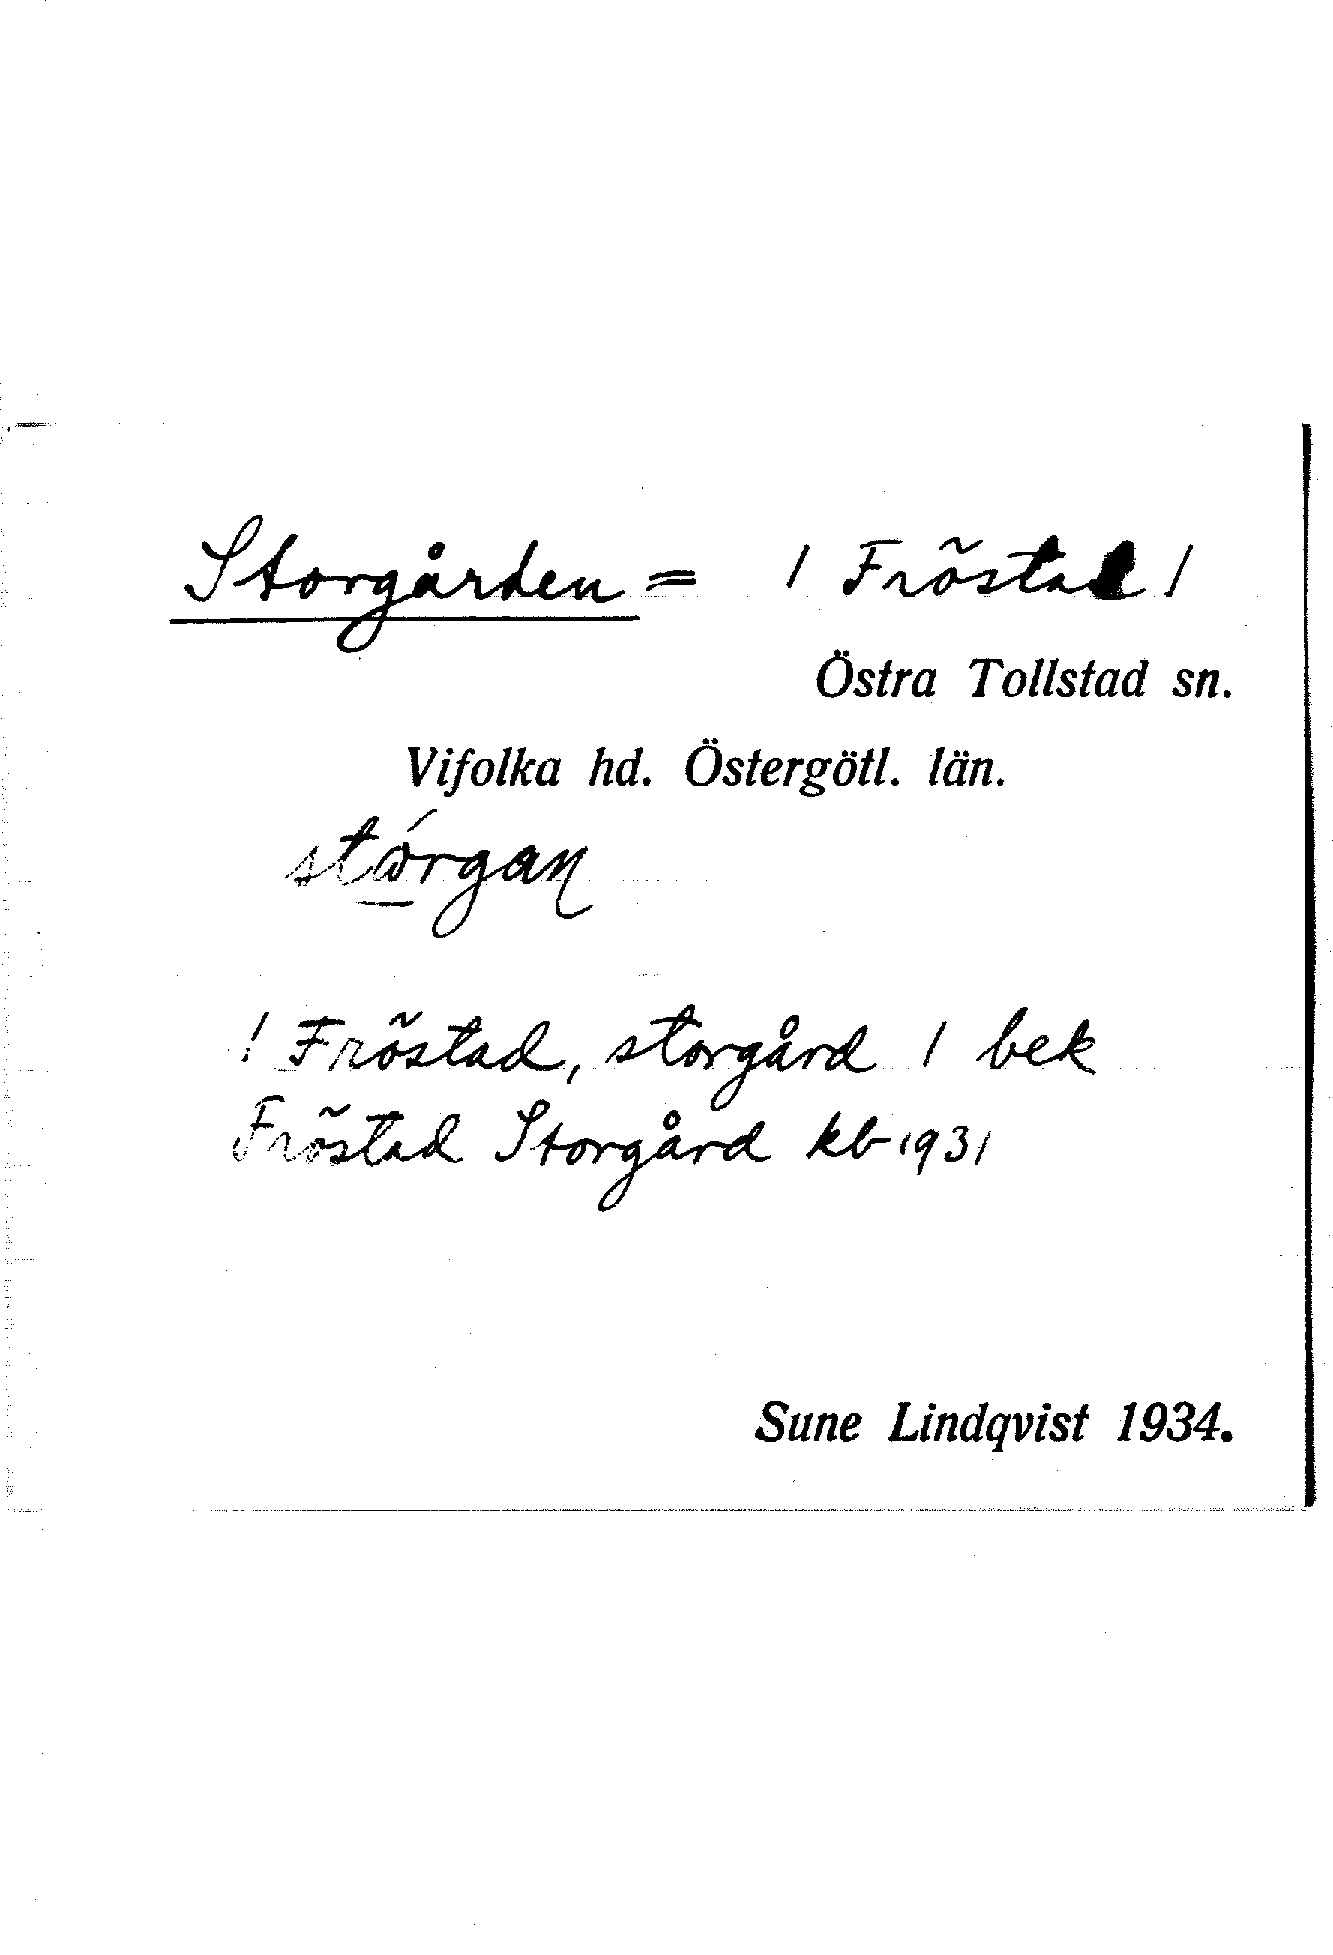 Storgården = / Fröstad /
Östra Tollstad sn.
Vifolka hd. Östergötl. län.
/ Fröstad, storgård / bek
Fröstad Storgård kb 1931
Sune Lindqvist 1934.